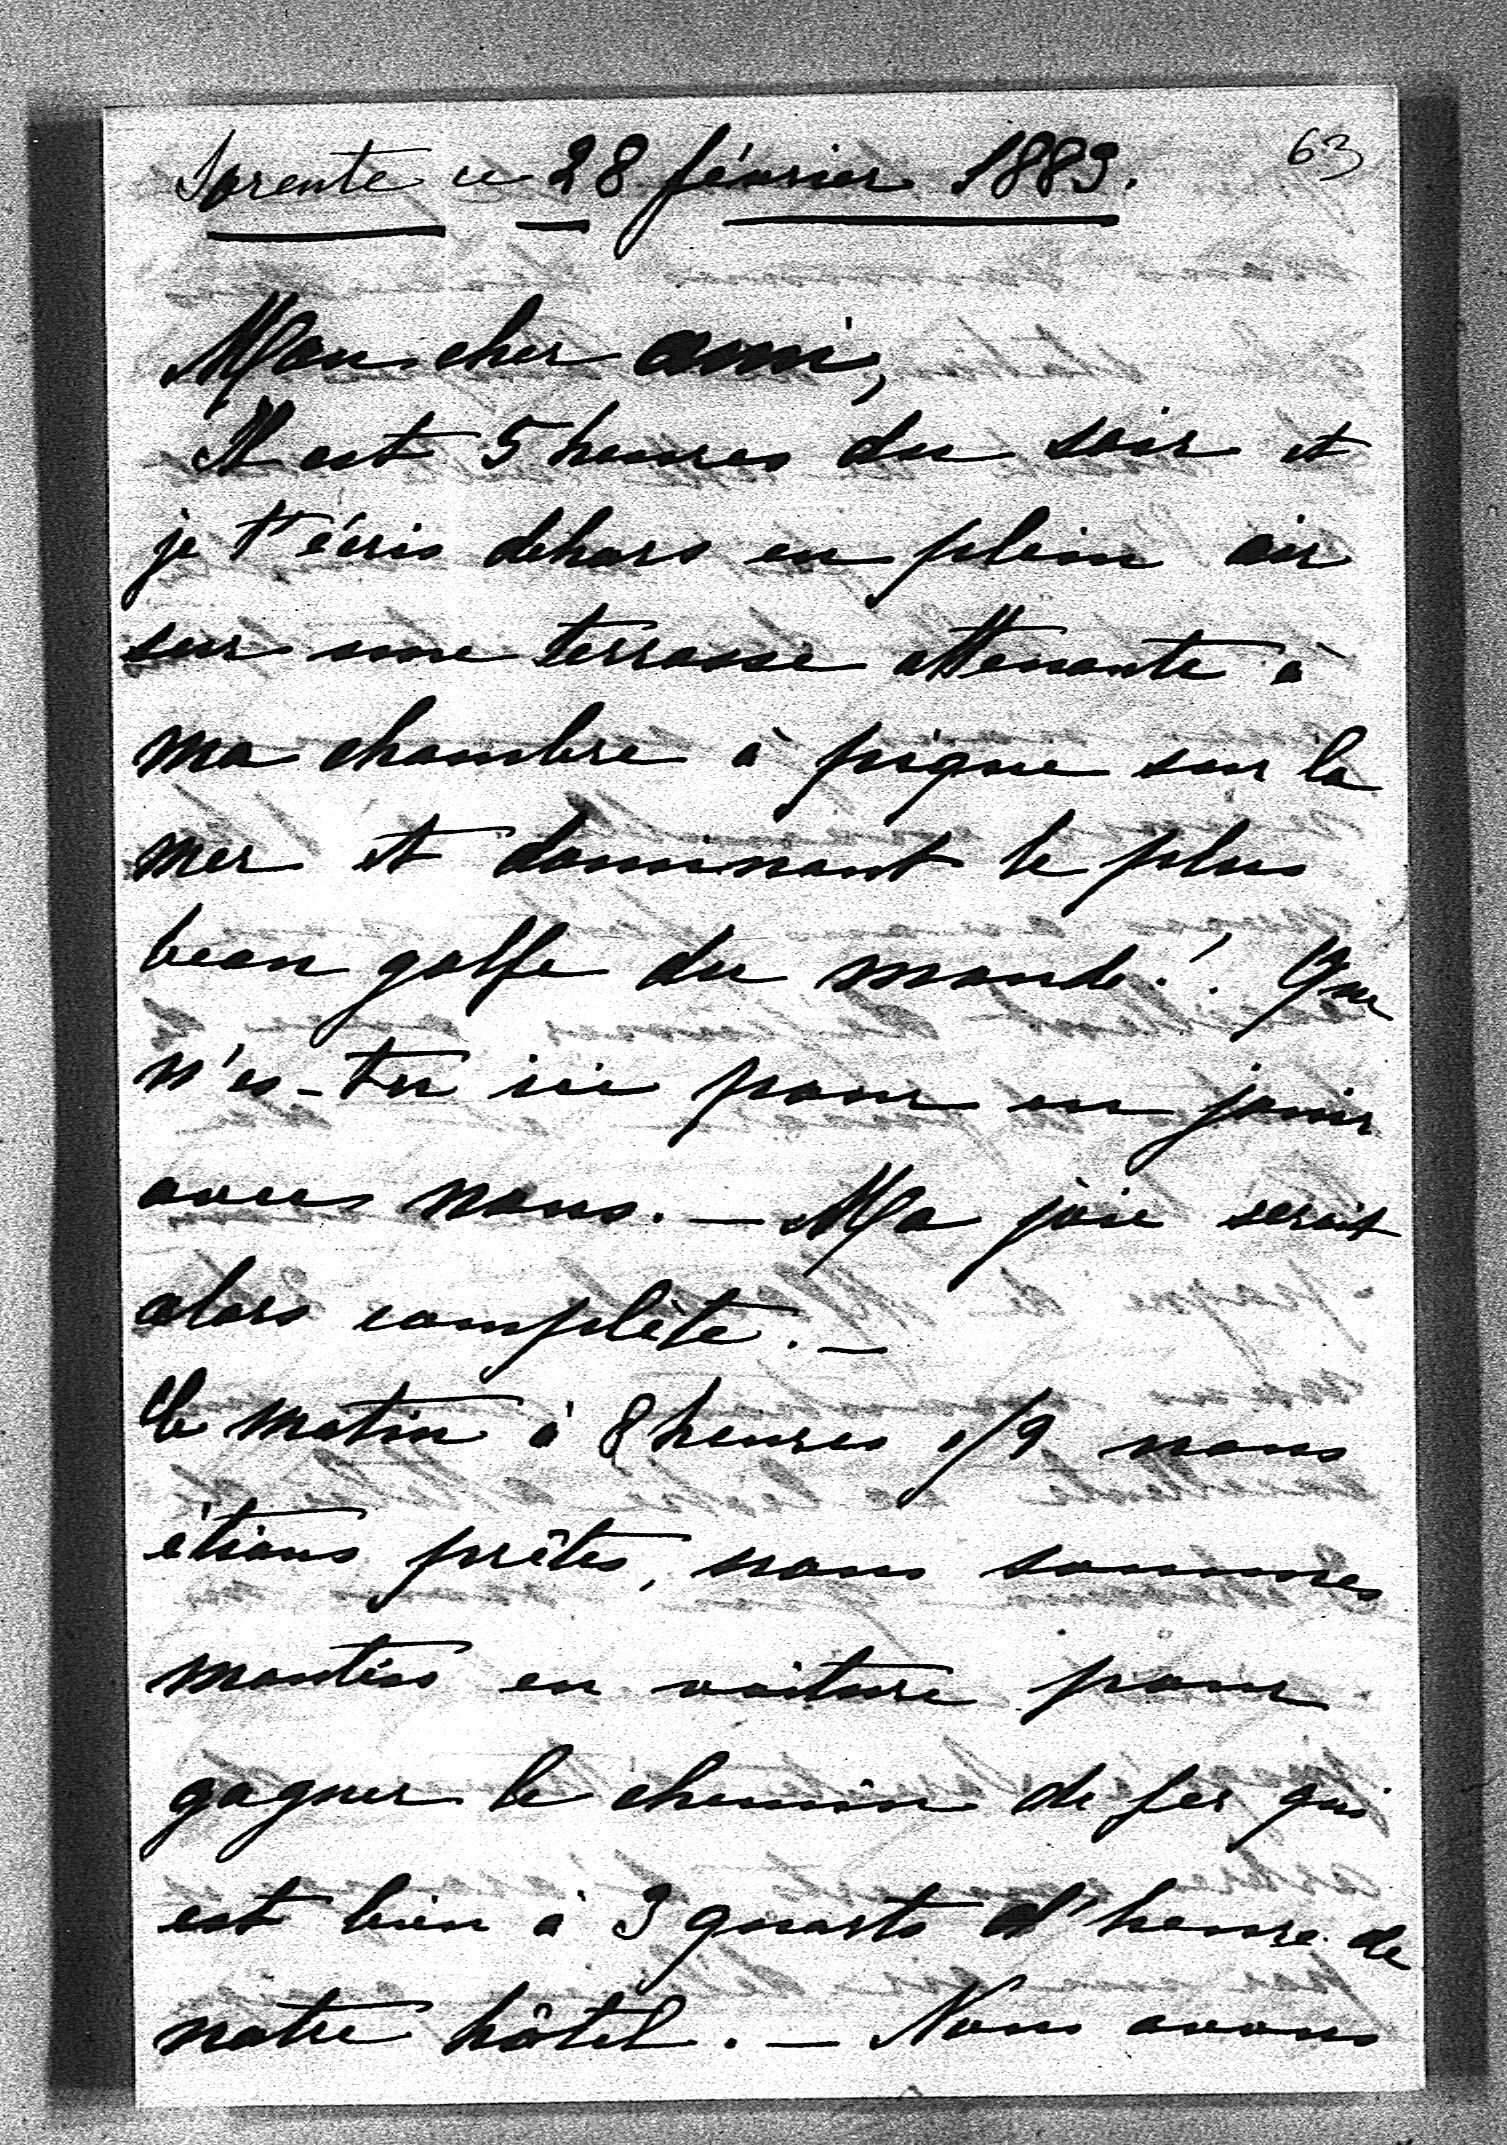 Sorente ce 28 février 1889.
63
Mon cher ami,
Il est 5 heures du soir et
je t'écris dehors en plein air
sur une terrasse attenante à
ma chambre à pique sur la
mer et dominant le plus
beau golfe du monde! Que
n'es-tu ici pour en jouir
avec nous. — Ma joie serait
alors complète. —
Ce matin à 8 heures 1/2 nous
étions prêtes, nous sommes
montées en voiture pour
gagner le chemin de fer qui
est bien à 3 quarts d'heure de
notre hôtel. — Nous avons